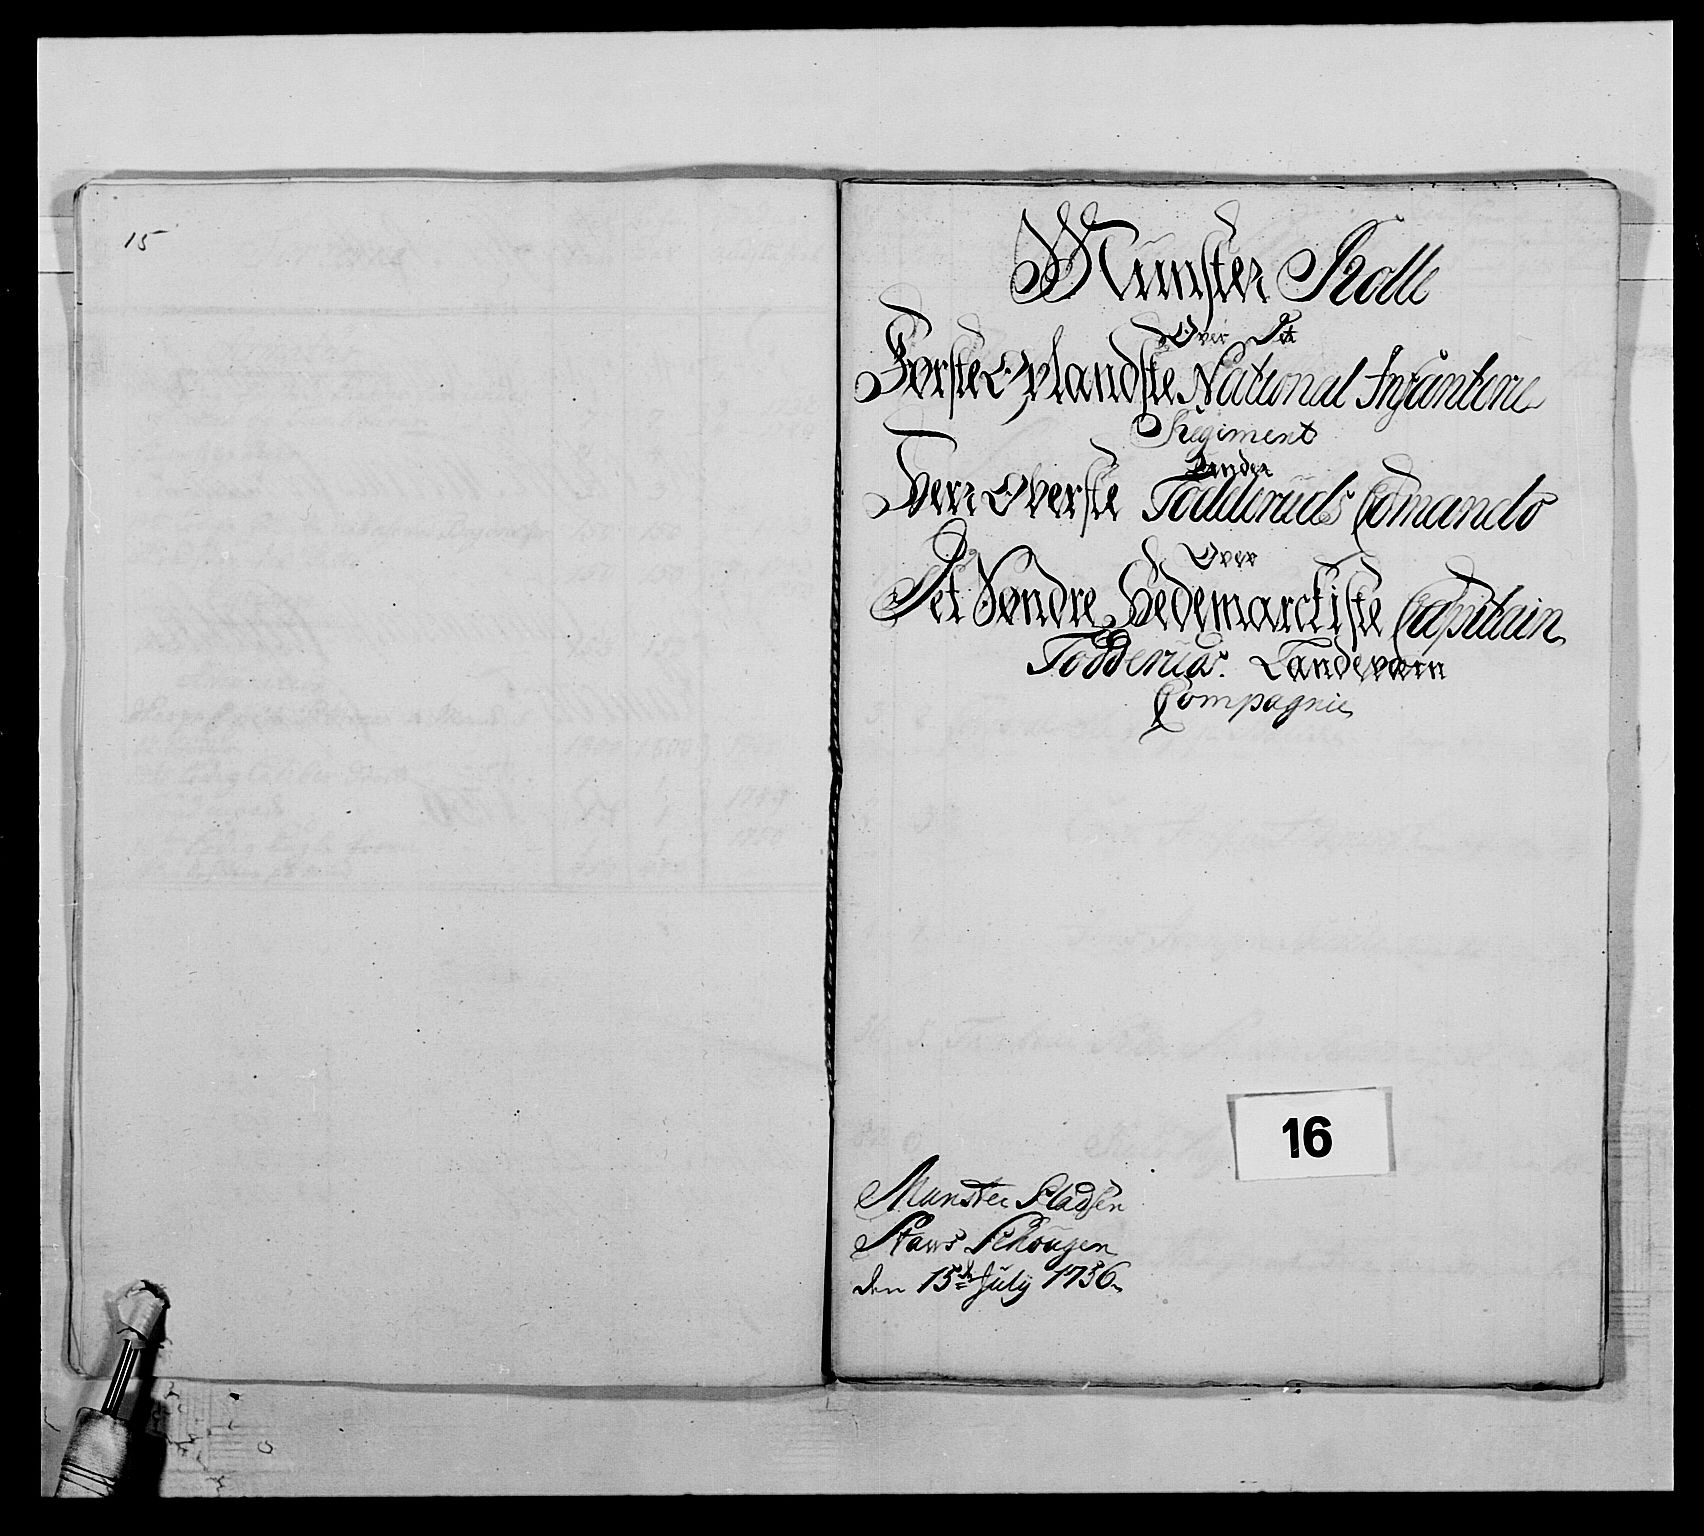 15
Münster Rolle
Over Det
Første Oplandske National Infanterie
Regiment
Under
Herr Oberste Todderuds Comando
Over
Det Søndre Hedemarckiske Capitain
Todderuds Landeværn
Compagnie
16
Munster Pladsen
Staws Schougen
den 15de July 1756